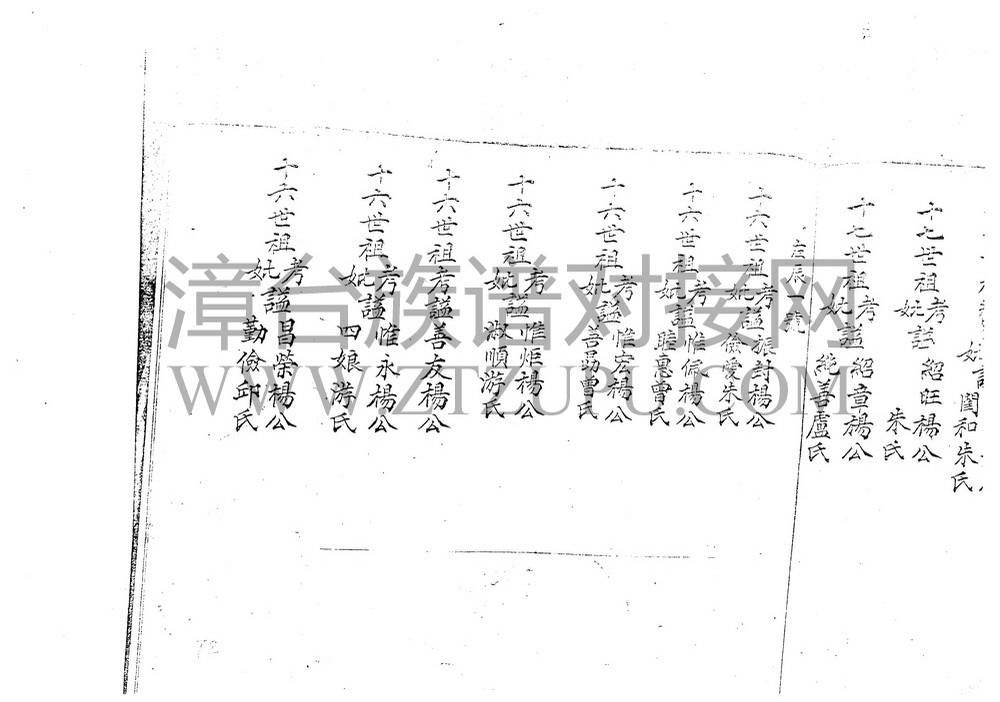 妣謚閨和朱氏
十七世祖考謚紹旺楊公
妣 朱氏
十七世祖考謚紹章楊公
妣純善盧氏
左辰一龕
十六世祖考謚振封楊公
妣儉愛朱氏
十六世祖考謚惟佩楊公
妣聰惠曾氏
十六世祖考謚惟宏楊公
妣善勗曾氏
十六世祖考謚惟炬楊公
妣淑順游氏
十六世祖考謚善友楊公
十六世祖考謚惟永楊公
妣四娘游氏
十六世祖考謚昌榮楊公
妣勤儉邱氏
漳台族谱对接网
WWW.ZTZUPU.COM
72